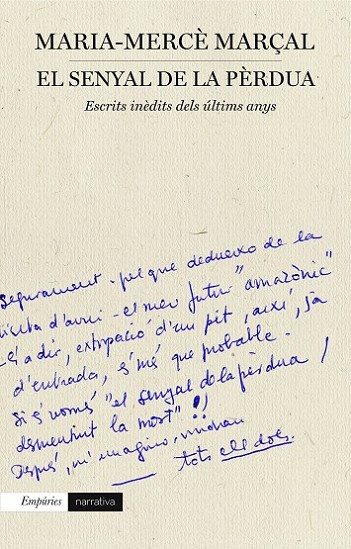 MARIA-MERCÈ MARÇAL
EL SENYAL DE LA PÈRDUA
Escrits inèdits dels últims anys
Segurament -pel que dedueixo de la
visita d'avui- el meu futur "amazònic"
-és a dir, extirpació d'un pit, així, ja
d'entrada, és més que probable.
Si és només "el senyal de la pèrdua /
desmentint la mort"!)
Després, m'imagino, vindran
tots els dols.
Empúries narrativa